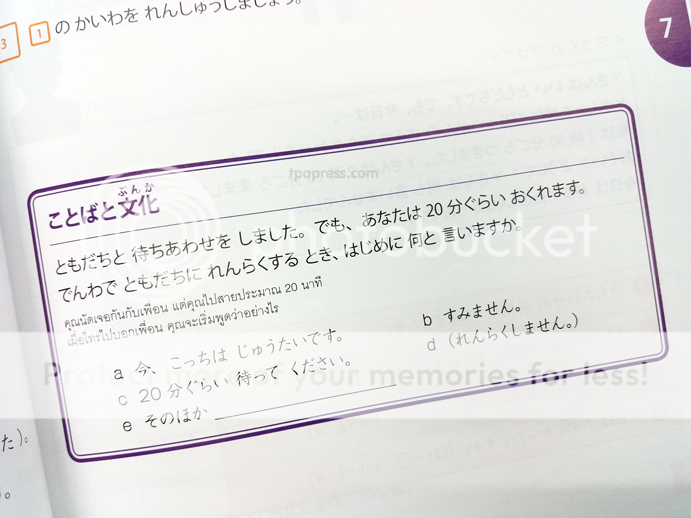 3 1 の かいわを れんしゅうしましょう。
7
tpapress.com
ことばと文化
ぶんか
ともだちと 待ちあわせを しました。でも、あなたは 20 分ぐらい おくれます。
でんわで ともだちに れんらくする とき、はじめに 何と 言いますか。
คุณนัดเจอกันกับเพื่อน แต่คุณไปสายประมาณ 20 นาที
เมื่อโทรไปบอกเพื่อน คุณจะเริ่มพูดว่าอย่างไร
a 今、こっちは じゅうたいです。
b すみません。
c 20 分ぐらい 待って ください。
d （れんらくしません。）
e そのほか
photobucket
Protect more of your memories for less!
た）。
。